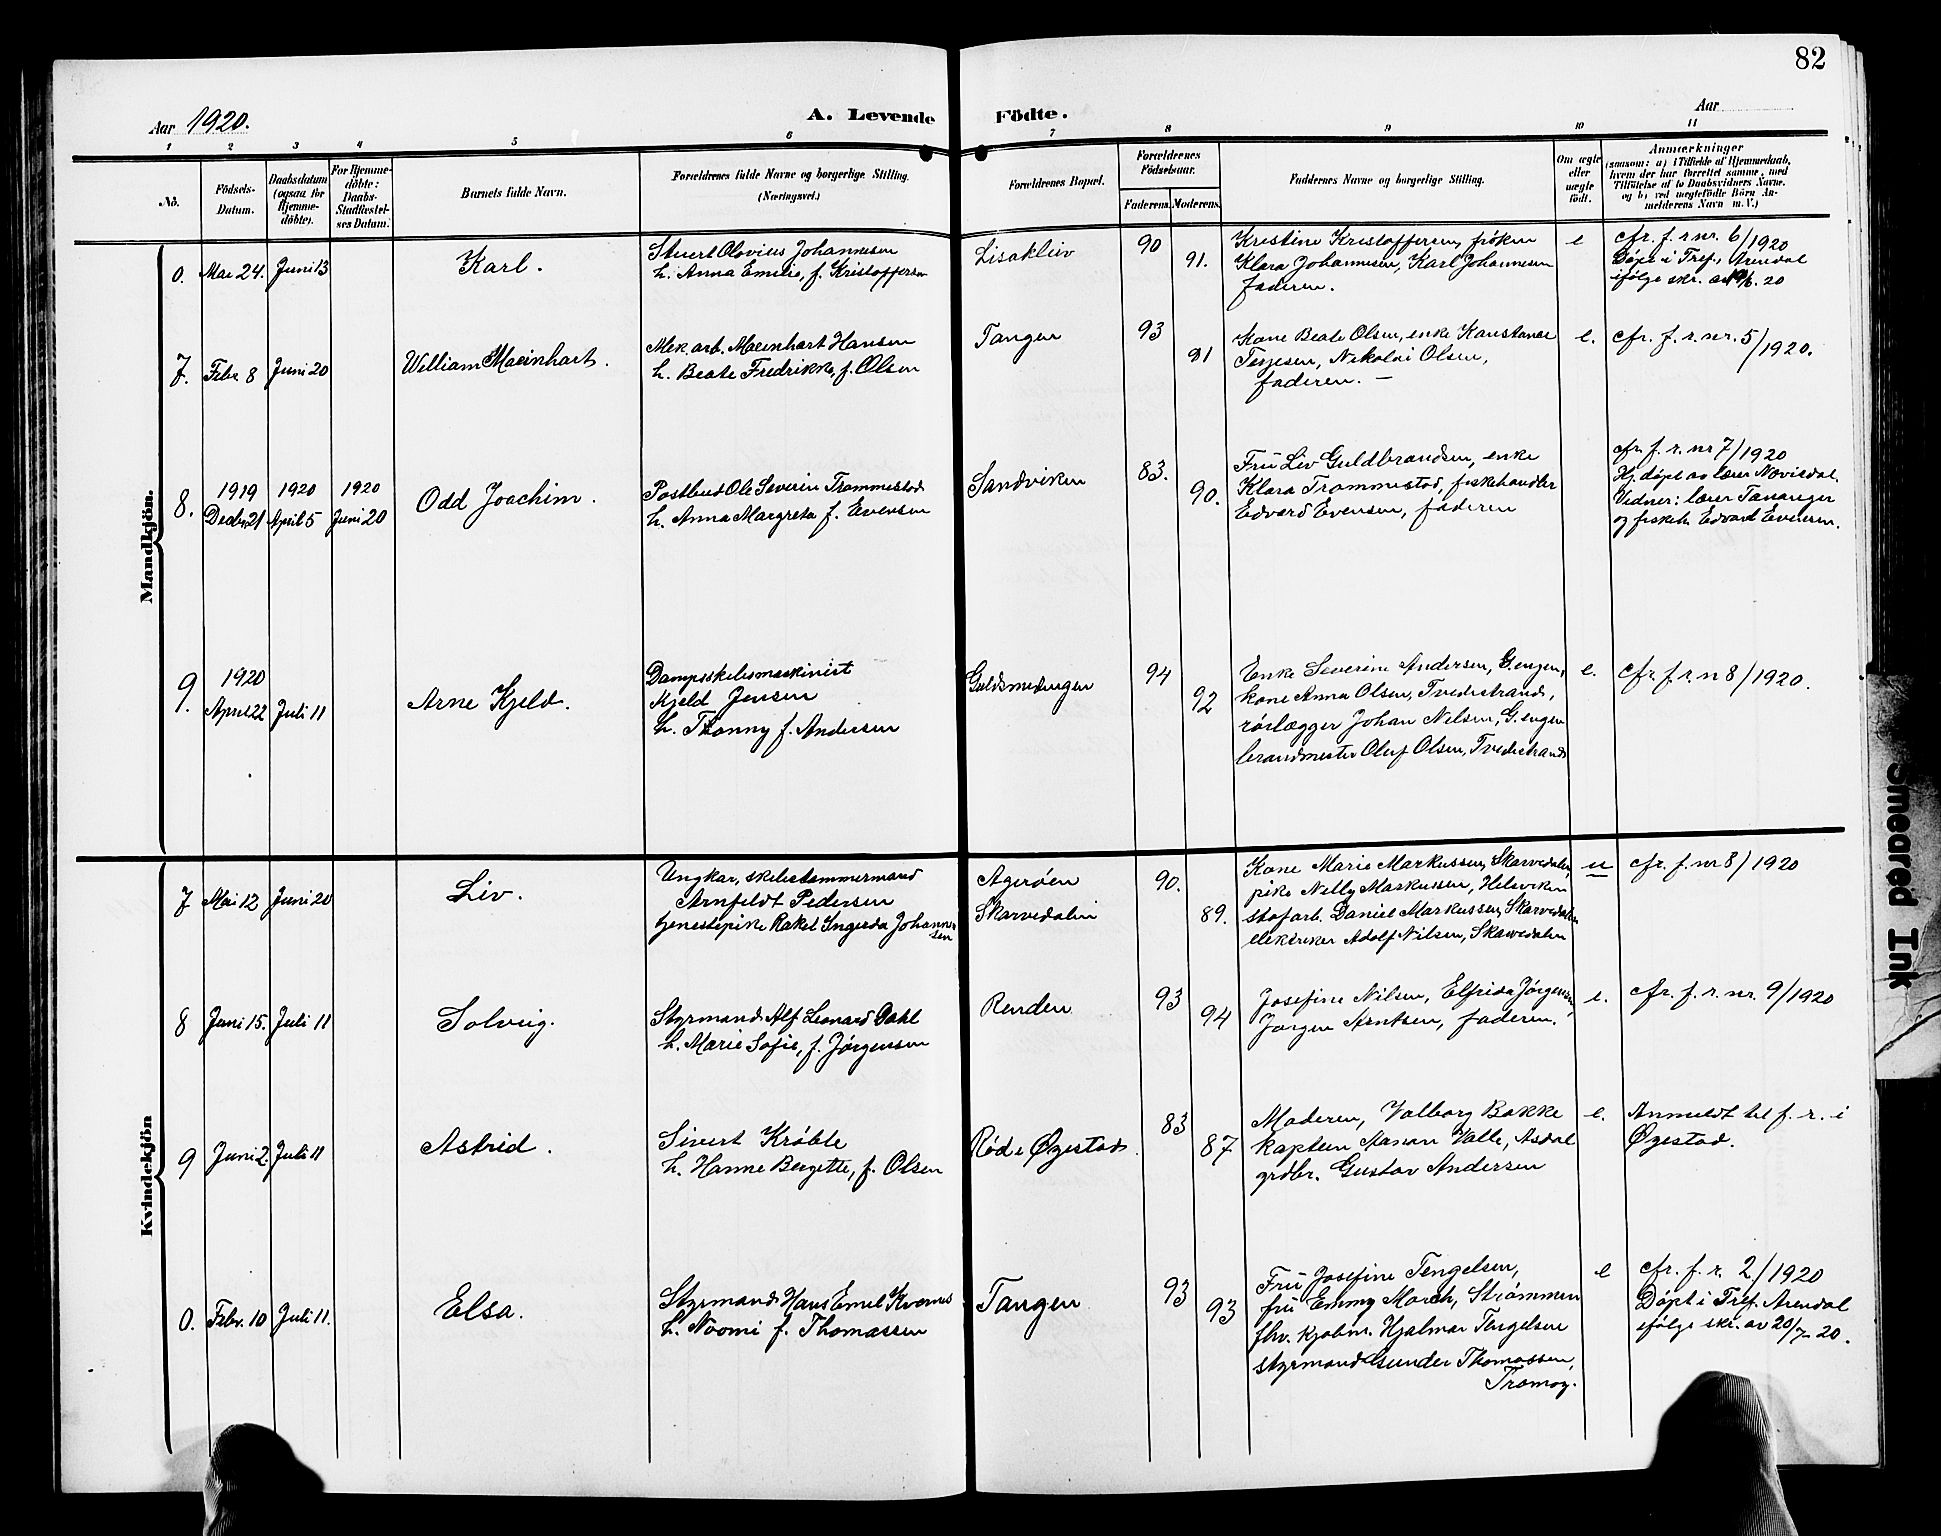 82
Aar 1920.
A. Levende Födte.
Aar
1 2 3 4 5 6 7 8 9 10 11
No.
Födsels-
Datum.
Daabsdatum
(ogsaa for
Hjemme-
döbte).
For Hjemme-
döbte:
Daabs-
Stadfæstel-
ses Datum.
Barnets fulde Navn.
Forældrenes fulde Navne og borgerlige Stilling.
(Næringsvei.)
Forældrenes Bopæl.
Forældrenes
Fødselsaar.
Faderens. Moderens.
Faddernes Navne og borgerlige Stilling.
Om ægte
eller
uægte
født.
Anmærkninger
(saasom: a) i Tilfælde af Hjemmedaab,
hvem der har forrettet samme, med
Tilföielse af to Daabsvidners Navne.
og b) ved uegtefödte Börn An-
melderens Navn m. V.)
Mandkjön.
0. Mai 24. Juni 13
Karl.
Stuert Olovius Johannesen
h. Anna Emilie, f. Kristoffersen
Lisakleiv
90
91.
Kristine Kristoffersen, frøken
Klara Johannesen, Karl Johannesen
faderen.
e
cfr. f. r nr. 6/1920
Døpt i Tref., Arendal
ifølge skr. av 19/6. 20
7. Febr 8 Juni 20
William Maeinhart.
Mek. arb. Maeinhart Hansen
h. Beate Fredrikke, f. Olsen
Tangen
93
91
Kone Beate Olsen, enke Konstanse
Terjesen, Nikolai Olsen,
faderen. —
e.
cfr. f. r. nr. 5/1920.
8.
1919 1920 1920
Decbr 21 April 5 Juni 20
Odd Joachim.
Postbud Ole Severin Trommestad
h. Anna Margreta f. Evensen
Sandviken
83.
90.
Fru Liv Guldbrandsen, enke
Klara Trommestad, fiskehandler
Edvard Evensen, faderen
cfr. f. r. nr 7/1920
Hj. døpt av lærer Nævisdal.
Vidner: lærer Tananger
og fiskeh. Edvard Evensen.
9.
1920
April 22 Juli 11
Arne Kjeld.
Dampskibsmaskinist
Kjeld Jensen
h. Thonny f. Andersen
Guldsmedengen
94
92
Enke Severine Andersen, G.engen,
kone Anna Olsen, Tvedestrand,
rørlægger Johan Nilsen, G.engen
brandmester Oluf Olsen, Tvedestrand
e.
cfr. f. r. n 8/1920.
Kvindekjön
7 Mai 12 Juni 20
Liv.
Ungkar, skibstømmermand
Arnfeldt Pedersen
tjenestepike Rakel Ingerda Johanne-
sen
Agerøen
Skarvedalen
90.
89.
Kone Marie Markussen, Skarvedalen,
pike Nelly Markussen, Helleviken
stofarb. Daniel Markussen, Skarvedalen
elektriker Adolf Nilsen, Skarvedalen
u
cfr. f. nr 8/1920
8 Juni 15. Juli 11
Solveig.
Styrmand Alf Leonard Dahl
h. Marie Sofie, f. Jørgensen
Renden
93
94
Josefine Nilsen, Elfrida Jørgensen,
Jørgen Arntsen, faderen.
e.
cfr. f. r. nr. 9/1920
9 Juni 2. Juli 11
Astrid.
Sivert Krøble
h. Hanne Bergette, f. Olsen
Rød i Øyestad.
83
87
Moderen, Valborg Bakke
kaptein Aanon Valle, Asdal
grdbr. Gustav Andersen
e.
Anmeldt til f. r. i
Øyestad.
0. Febr. 10 Juli 11.
Elsa.
Styrmand Hans Emil Kvernes
h. Noomi f. Thomassen
Tangen
93
93
Fru Josefine Tengelsen,
fru Emmy Morch, Strømmen
fhv. kjøbm. Hjalmar Tengelsen
styrmand Gunder Thomassen,
Tromøy.
e
cfr. f. r. 2/1920
Døpt i Tref. Arendal
ifølge skr. av 20/7-20.
Smeared Ink